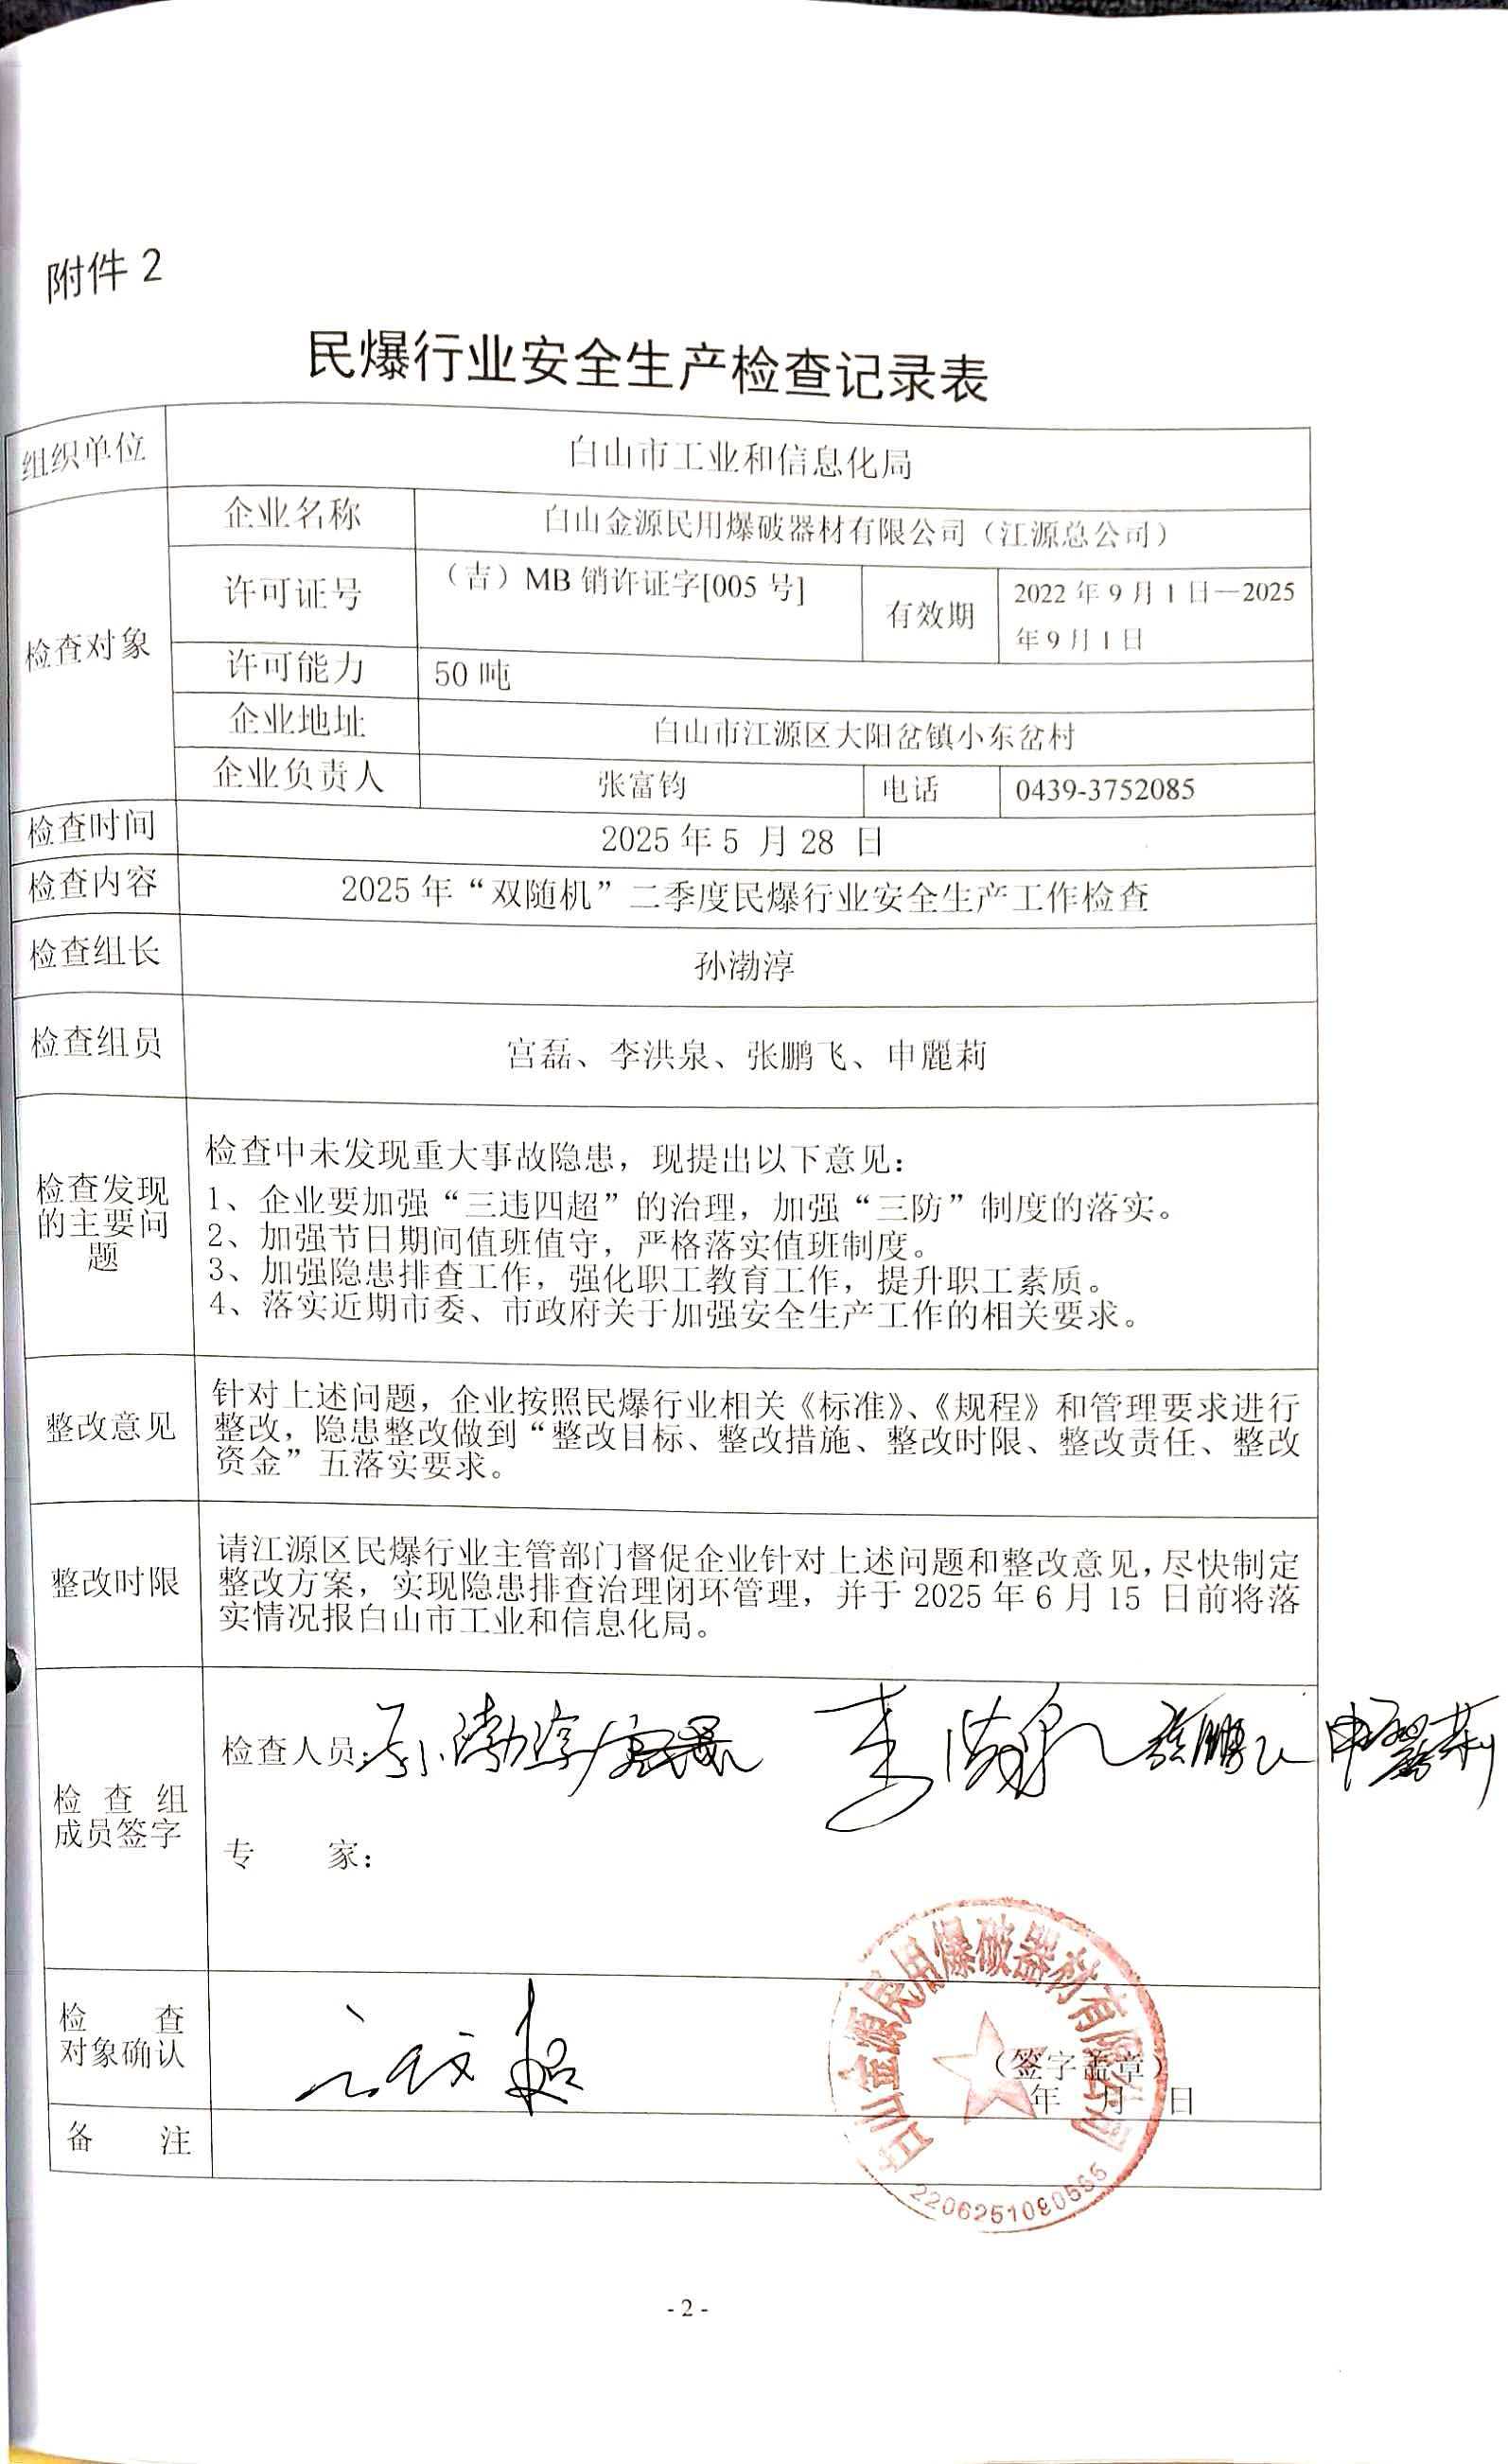 附件 2
民爆行业安全生产检查记录表
组织单位
白山市工业和信息化局
检查对象
企业名称
白山金源民用爆破器材有限公司（江源总公司）
许可证号
（吉）MB 销许证字[005 号]
有效期
2022 年 9 月 1 日—2025
年 9 月 1 日
许可能力
50 吨
企业地址
白山市江源区大阳岔镇小东岔村
企业负责人
张富钧
电话
0439-3752085
检查时间
2025 年 5 月 28 日
检查内容
2025 年“双随机”二季度民爆行业安全生产工作检查
检查组长
孙渤淳
检查组员
宫磊、李洪泉、张鹏飞、申麗莉
检查发现
的主要问
题
检查中未发现重大事故隐患，现提出以下意见：
1、企业要加强“三违四超”的治理，加强“三防”制度的落实。
2、加强节日期间值班值守，严格落实值班制度。
3、加强隐患排查工作，强化职工教育工作，提升职工素质。
4、落实近期市委、市政府关于加强安全生产工作的相关要求。
整改意见
针对上述问题，企业按照民爆行业相关《标准》、《规程》和管理要求进行
整改，隐患整改做到“整改目标、整改措施、整改时限、整改责任、整改
资金”五落实要求。
整改时限
请江源区民爆行业主管部门督促企业针对上述问题和整改意见，尽快制定
整改方案，实现隐患排查治理闭环管理，并于 2025 年 6 月 15 日前将落
实情况报白山市工业和信息化局。
检 查 组
成员签字
检查人员：孙渤淳 宫磊 李洪泉 张鹏飞 申麗莉
专 家：
检 查
对象确认
（签字盖章）
年 月 日
白山金源民用爆破器材有限公司
备 注
- 2 -